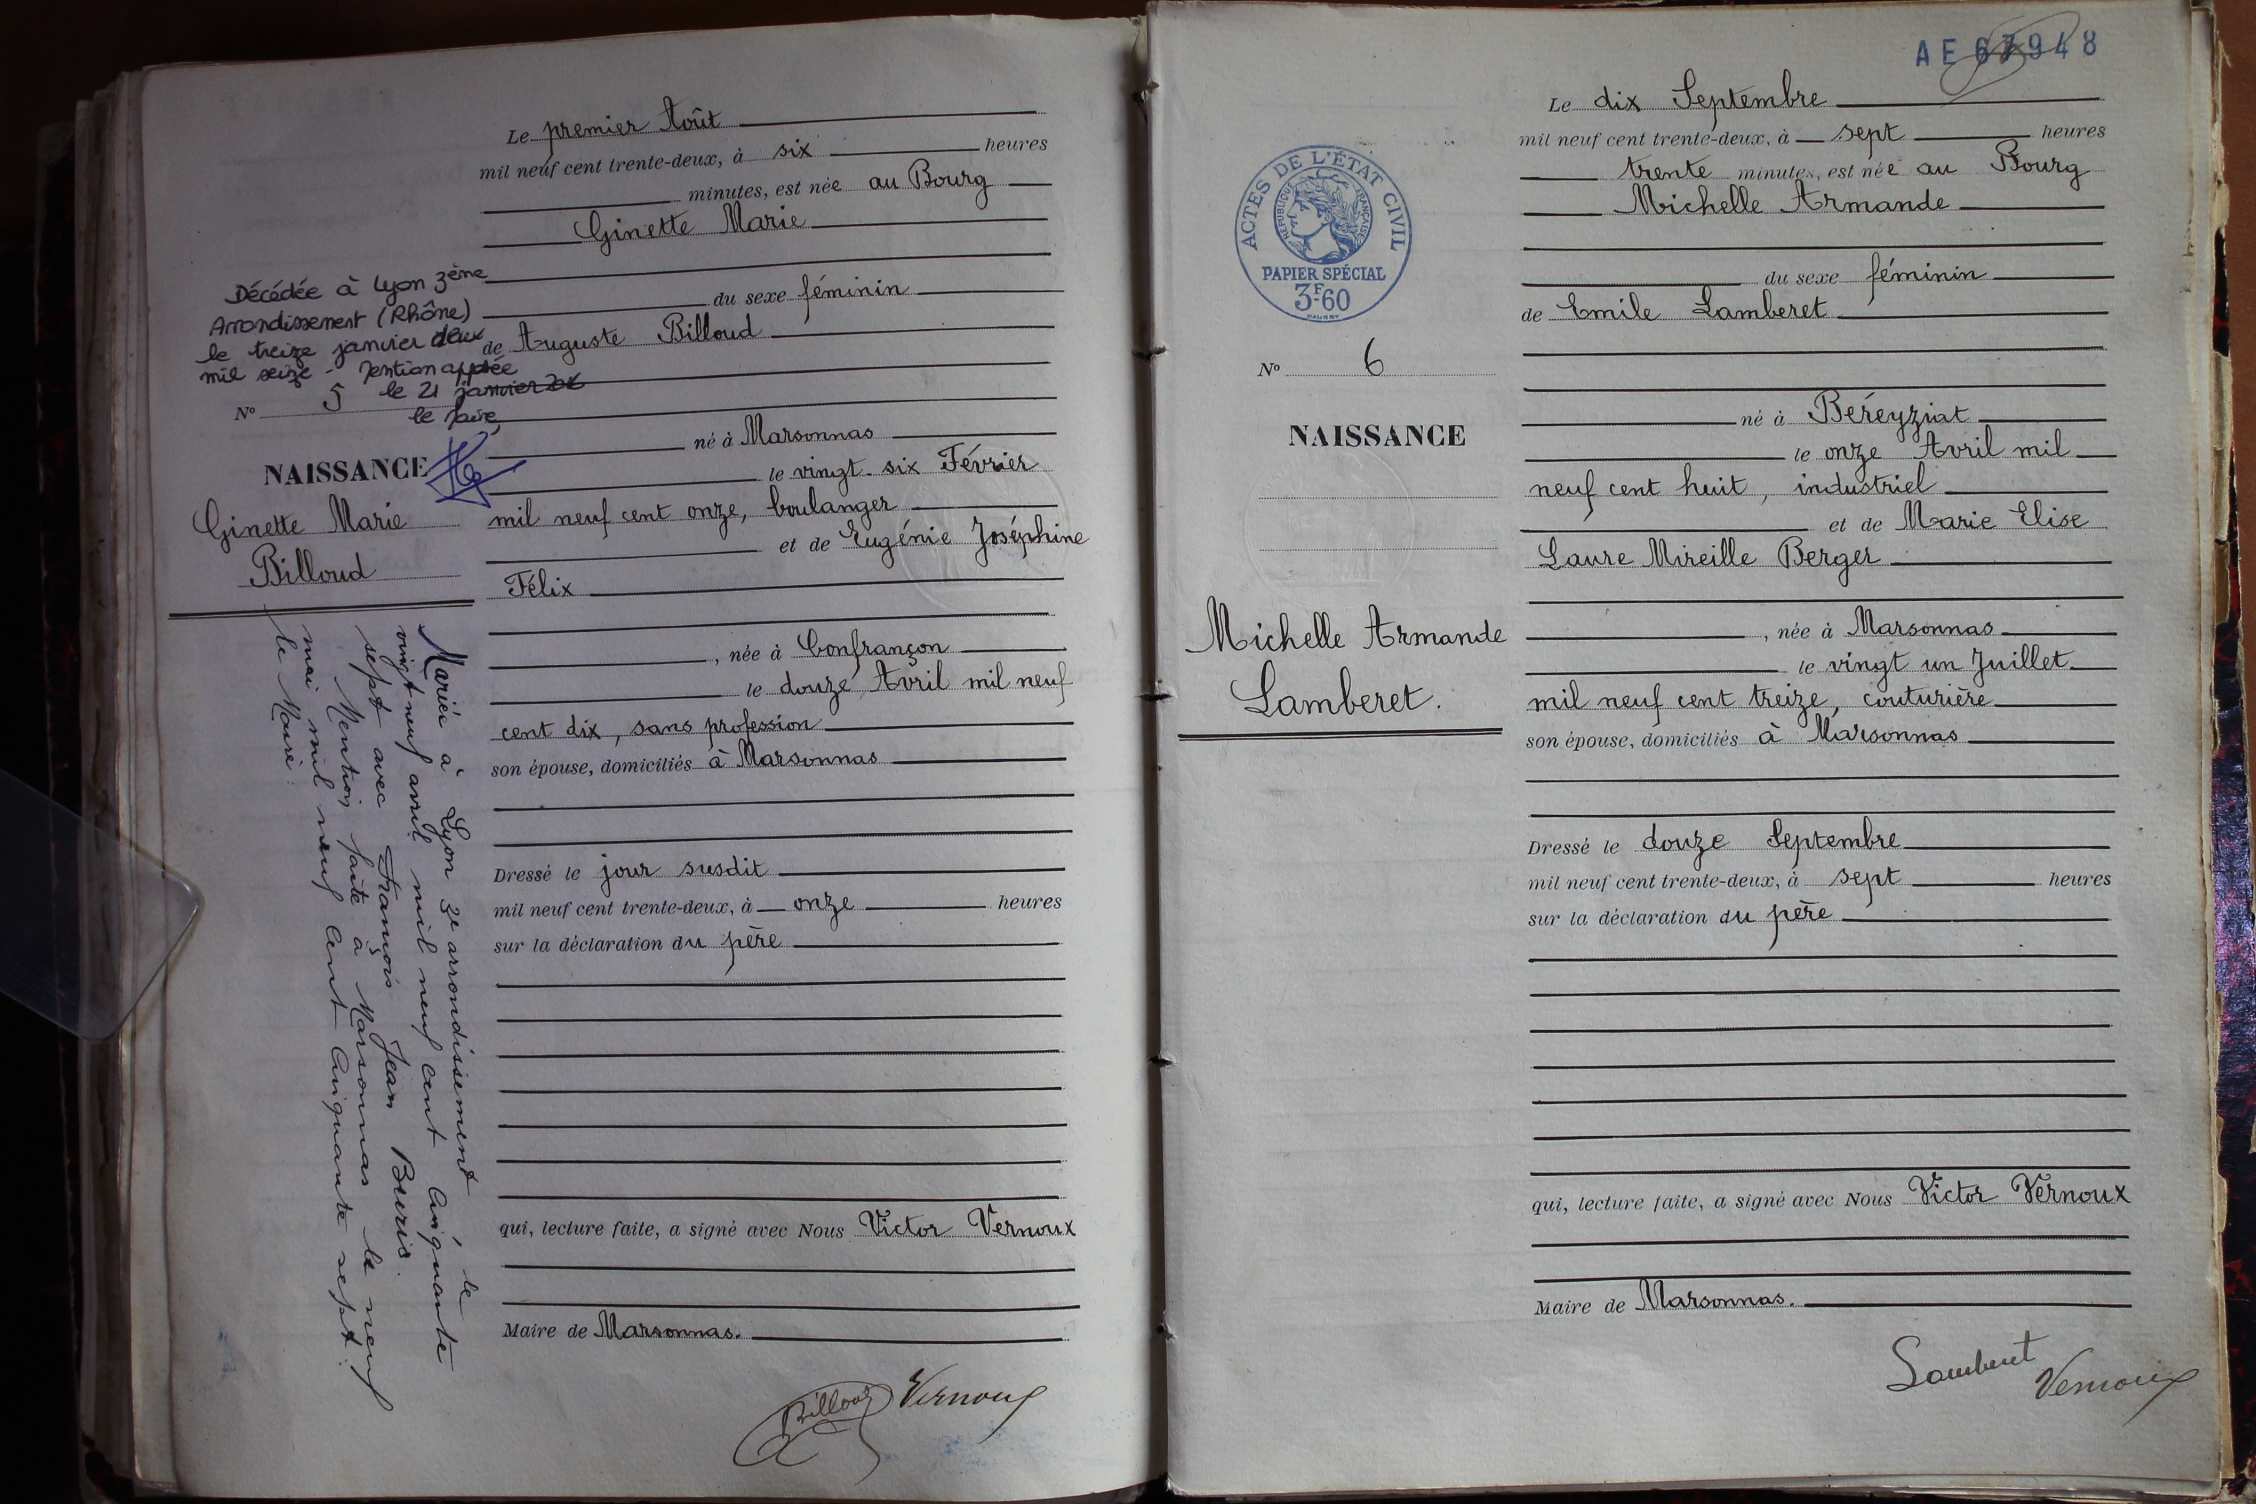 Le premier Août
mil neuf cent trente-deux, à six heures
minutes, est née au Bourg
Ginette Marie
du sexe féminin
de Auguste Billoud
né à Marsonnas
le vingt-six Février
mil neuf cent onze, boulanger
et de Eugénie Joséphine
Félix
, née à Confrançon
le douze Avril mil neuf
cent dix, sans profession
son épouse, domiciliés à Marsonnas
Dressé le jour susdit
mil neuf cent trente-deux, à onze heures
sur la déclaration du père
qui, lecture faite, a signé avec Nous Victor Vernoux
Maire de Marsonnas.
Billoud Vernoux
Décédée à Lyon 3ème
Arrondissement (Rhône)
le treize janvier deux
mil seize - Mention apposée
le 21 janvier 2016
le Maire,
N° 5
NAISSANCE
Ginette Marie
Billoud
Mariée à Lyon 3e arrondissement le
vingt neuf avril mil neuf cent cinquante
sept avec François Jean Buris.
Mention faite à Marsonnas le neuf
mai mil neuf cent cinquante sept.
Le Maire:
AE 67948
ACTES DE L'ÉTAT CIVIL
RÉPUBLIQUE FRANÇAISE
PAPIER SPÉCIAL
3F60
N° 6
NAISSANCE
Michelle Armande
Lamberet.
Le dix Septembre
mil neuf cent trente-deux, à sept heures
trente minutes, est née au Bourg
Michelle Armande
du sexe féminin
de Emile Lamberet
né à Beréyziat
le onze Avril mil
neuf cent huit, industriel
et de Marie Elise
Laure Mireille Berger
, née à Marsonnas
le vingt un Juillet
mil neuf cent treize, couturière
son épouse, domiciliés à Marsonnas
Dressé le douze Septembre
mil neuf cent trente-deux, à sept heures
sur la déclaration du père
qui, lecture faite, a signé avec Nous Victor Vernoux
Maire de Marsonnas.
Lamberet
Vernoux